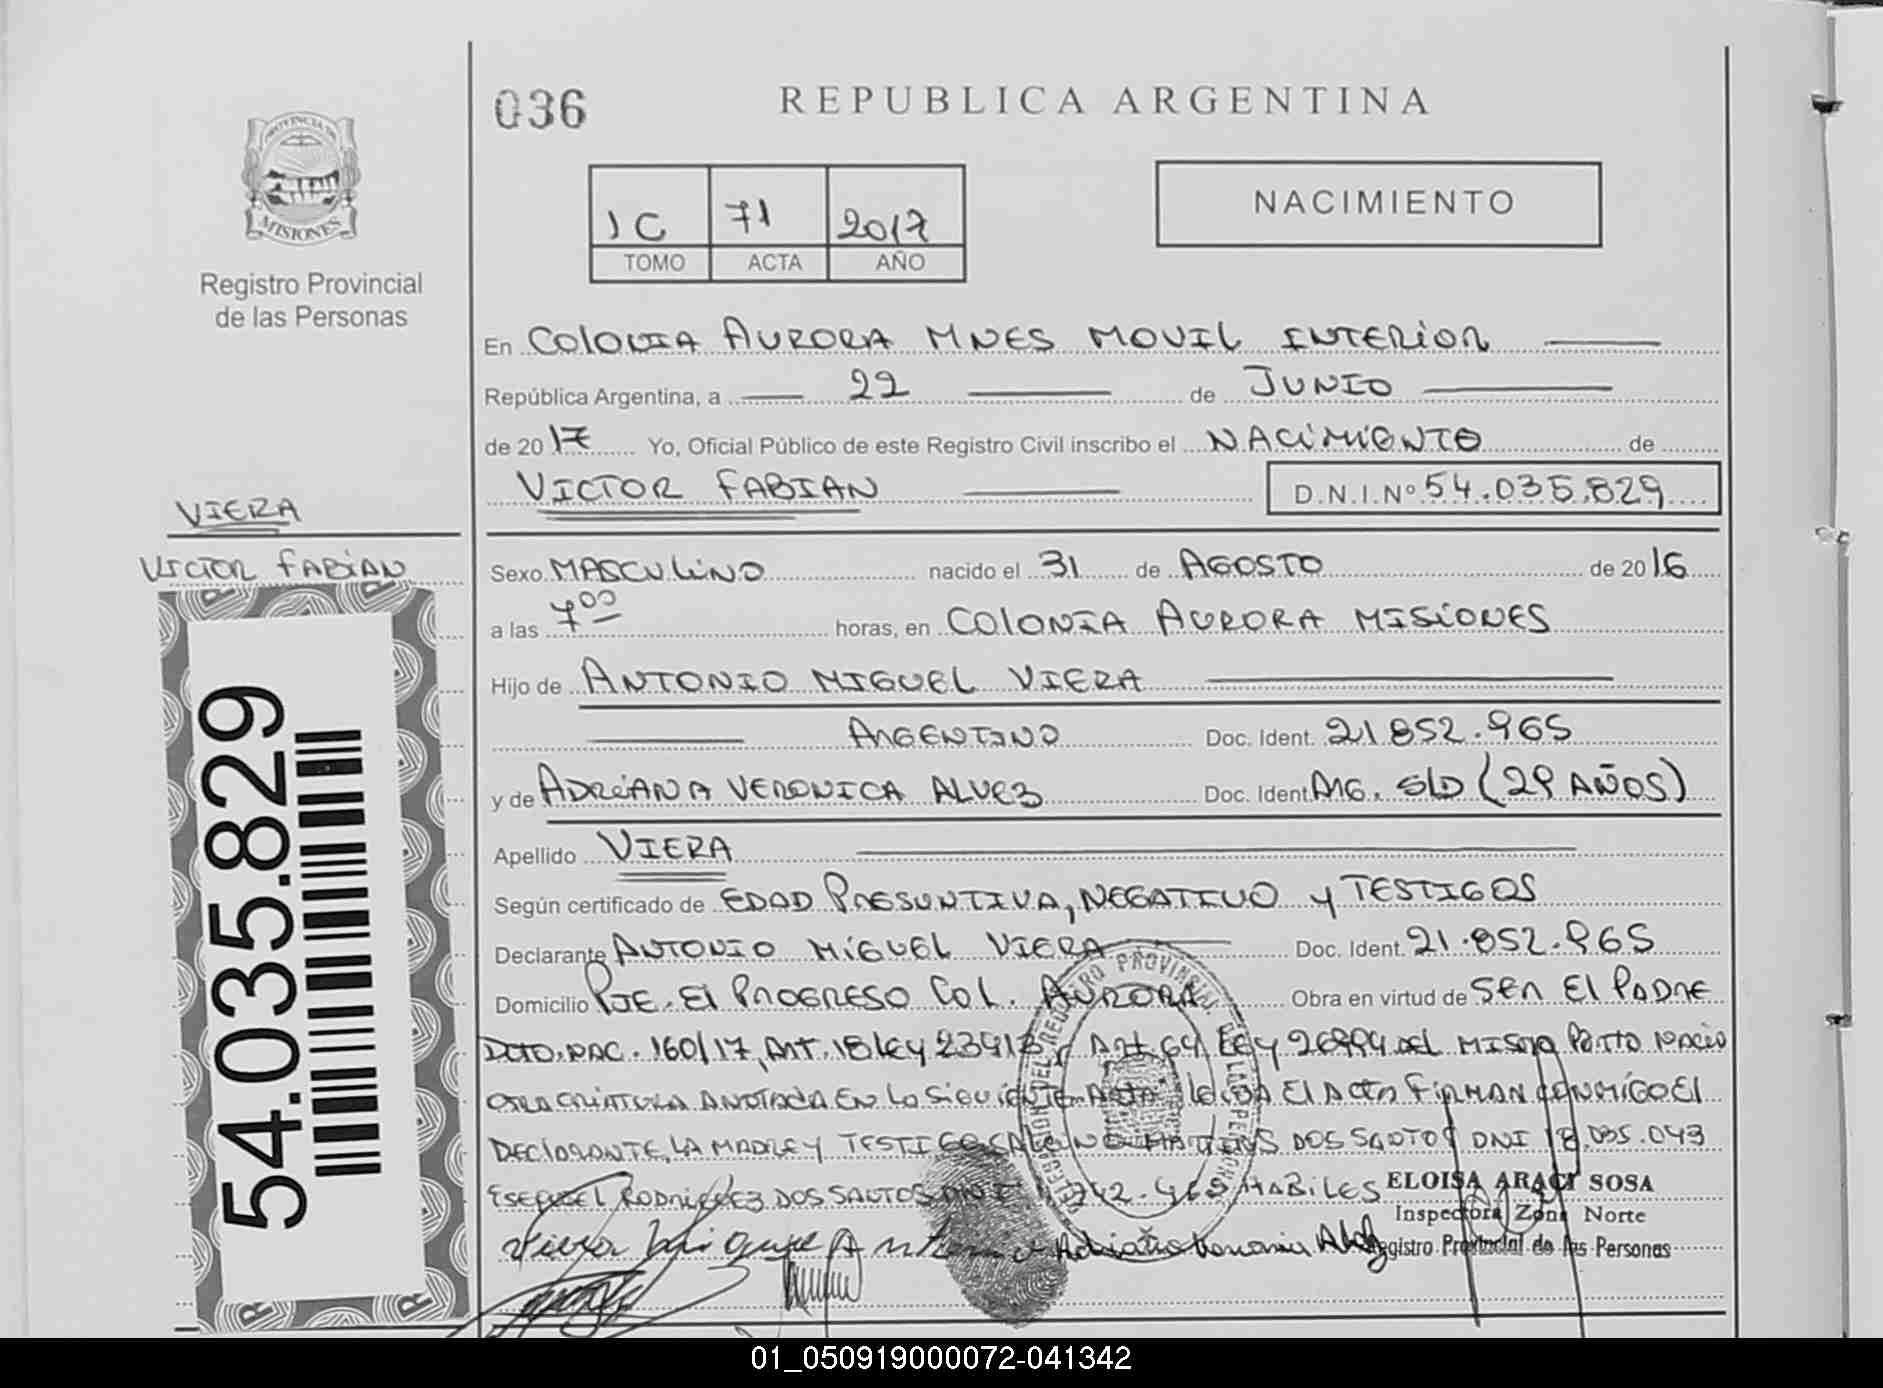 036
REPUBLICA ARGENTINA
PROVINCIA DE
MISIONES
Registro Provincial
de las Personas
1C 71 2017
TOMO ACTA AÑO
NACIMIENTO
En COLONIA AURORA MNES MOVIL INTERIOR
República Argentina, a 22 de JUNIO
de 2017 Yo, Oficial Público de este Registro Civil inscribo el NACIMIENTO de
VICTOR FABIAN D.N.I.Nº 54.035.829
VIERA
VICTOR FABIAN
54.035.829
Sexo MASCULINO nacido el 31 de AGOSTO de 2016
a las 7 00 horas, en COLONIA AURORA MISIONES
Hijo de ANTONIO MIGUEL VIERA
ARGENTINO Doc. Ident. 21852.965
y de ADRIANA VERONICA ALVEZ Doc. Ident. ARG. S/D (29 AÑOS)
Apellido VIERA
Según certificado de EDAD PRESUNTIVA, NEGATIVO y TESTIGOS
Declarante ANTONIO MIGUEL VIERA Doc. Ident. 21.852.965
Domicilio PJE. El PROGRESO COL. AURORA Obra en virtud de SER El PADRE
DCTO. NAC. 160/17, ART. 18 LEY 23413 y Art 64 LEY 26994 DEL MISMO PARTO NACIO
OTRA CRIATURA ANOTADA EN LA SIGUIENTE ACTA LEIDA El ACTA FIRMAN CONMIGO El
DECLARANTE, LA MADRE Y TESTIGOS MARTINS DOS SANTOS DNI 18.035.043
ESEQUIEL RODRIGUEZ DOS SANTOS DNI 742.469 HABILES
ELOISA ARACI SOSA
Inspectora Zona Norte
Registro Provincial de las Personas
Viera Miguel Antonio
01_050919000072-041342